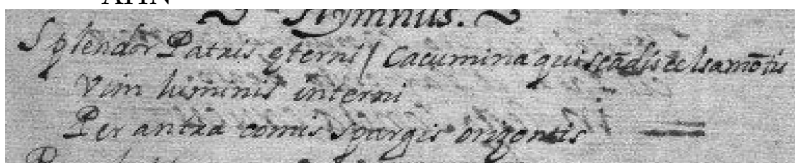 Hymnus.
Splendor Patris ęterni / Cacumina qui scādis celsa mōtis
Vim luminis interni
Per antra comis spargis orizontis